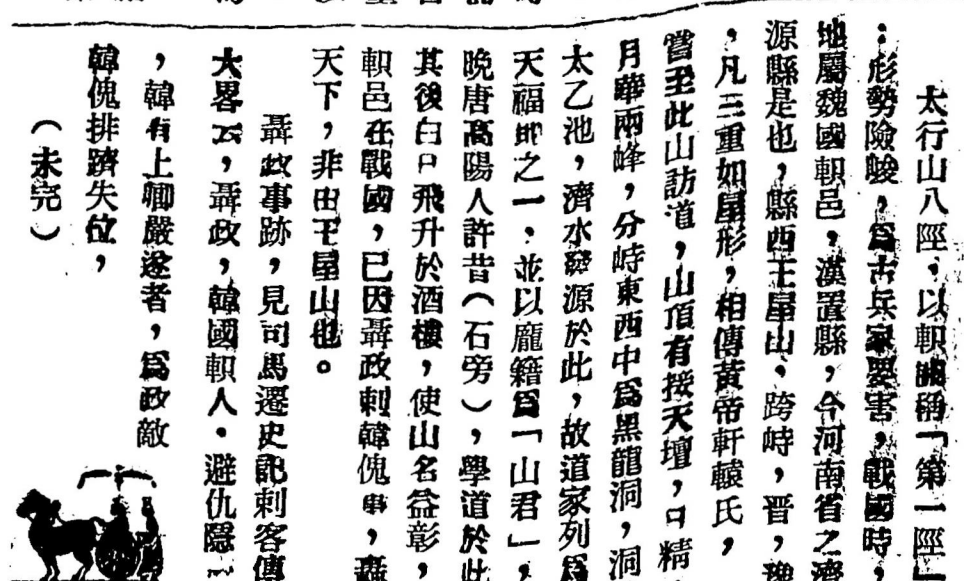 太行山八陘,以軹關稱「第一陘」
:形勢險峻,爲古兵家要害,戰國時,
地屬魏國軹邑,漢置縣,今河南省之濟
源縣是也,縣西王屋山,跨峙,晋,豫
,凡三重如屋形,相傳黃帝軒轅氏,
嘗至此山訪道,山頂有接天壇,日精,
月華兩峰,分峙東西中爲黑龍洞,洞
太乙池,濟水發源於此,故道家列爲
天福地之一,並以龐籍爲「山君」,
晚唐高陽人許昔(石旁),學道於此
其後白日飛升於酒樓,使山名益彰,
軹邑在戰國,已因聶政刺韓傀事,轟
天下,非由王屋山也。
聶政事跡,見司馬遷史記刺客傳
大畧云,聶政,韓國軹人.避仇隱
,韓有上卿嚴遂者,爲政敵
韓傀排躋失位,
(未完)